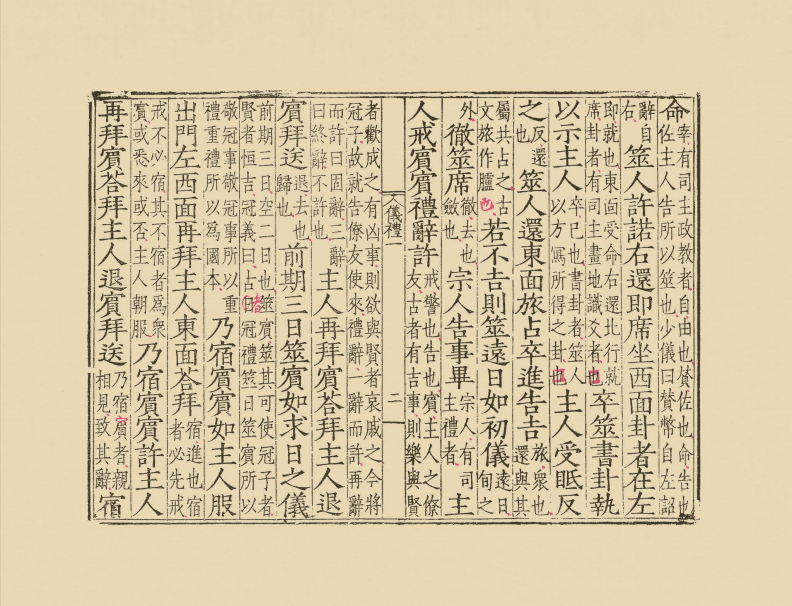 命宰有司主政教者自由也贊佐也命告也佐主人告所以筮也少儀曰贊幣自左詔
辭自右筮人許諾右還即席坐西面卦者在左
即就也東面受命右還北行就席卦者有司主畫地識爻者也卒筮書卦執
以示主人卒已也書卦者筮人以方冩所得之卦也主人受眡反
之反還也筮人還東面旅占卒進告吉旅衆也還與其
屬共占之古文旅作臚也若不吉則筮遠日如初儀遠日旬之
外徹筮席徹去也斂也宗人告事畢宗人有司主禮者主
人戒賓賓禮辭許戒警也告也賓主人之僚友古者有吉事則樂與賢
儀禮一
二
者歡成之有凶事則欲與賢者哀戚之今將冠子故就告僚友使來禮辭一辭而許再辭
而許曰固辭三辭曰終辭不許也主人再拜賓荅拜主人退
賓拜送退去也歸也前期三日筮賓如求日之儀
前期三日空二日也筮賓筮其可使冠子者賢者恒吉冠義曰古者冠禮筮日筮賓所以
敬冠事敬冠事所以重禮重禮所以爲國本乃宿賓賓如主人服
出門左西面再拜主人東面荅拜宿進也宿者必先戒
戒不必宿其不宿者爲衆賓或悉來或否主人朝服乃宿賓賓許主人
再拜賓荅拜主人退賓拜送乃宿賓者親相見致其辭宿